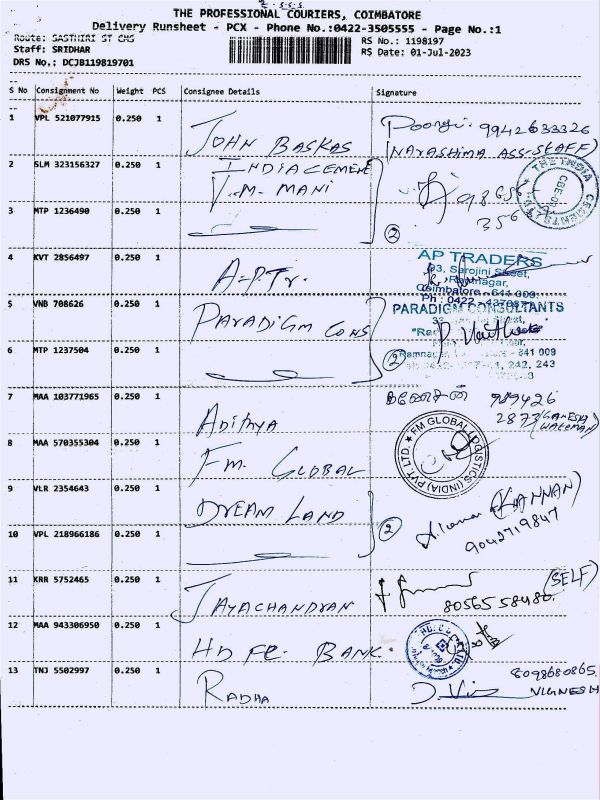 THE PROFESSIONAL COURIERS, COIMBATORE
Delivery Runsheet - PCX - Phone No.:0422-3505555 - Page No.:1
Route: SASTHIRI ST CMS
RS No.: 1198197
Staff: SRIDHAR
RS Date: 01-Jul-2023
DRS No,: DCJB119819701
S No Consignment No Weight PCS Consignee Details Signature
1 VPL 521077915 0.250 1 JOHN BASKAS Poongi. 9942633326
(NARASHIMA ASS-STAFF)
2 SLM 323156327 0.250 1 INDIA CEMENT
V.M. MANI 98656
356
THE INDIA CEMENTS LTD
3 MTP 1236490 0.250 1 2
4 KVT 2856497 0.250 1 A.P.Tr. AP TRADERS
93, Sarojini Street,
Ramnagar,
Coimbatore - 641 009.
5 VNB 708626 0.250 1 PARADIGM CONS PARADIGM CONSULTANTS
6 MTP 1237504 0.250 1 2
7 MAA 103771965 0.250 1 ADITHYA 989426
2877 (GANESH
WATCHMAN)
8 MAA 570355304 0.250 1 FM. GLOBAL FM GLOBAL LOGISTICS (INDIA) PVT. LTD.
9 VLR 2354643 0.250 1 DREAM LAND (KANNAN)
9042719847
10 VPL 218966186 0.250 1 2
11 KRR 5752465 0.250 1 JAYACHANDRAN (SELF)
80565 58480.
12 MAA 943306950 0.250 1 HDFC. BANK.
13 TNJ 5502997 0.250 1 RADHA 8098680865.
VIGNESH